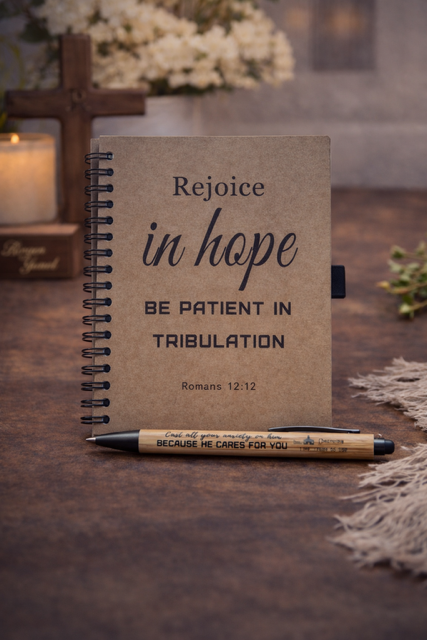 Rejoice
in hope
BE PATIENT IN
TRIBULATION
Romans 12:12
Cast all your anxiety on him
BECAUSE HE CARES FOR YOU